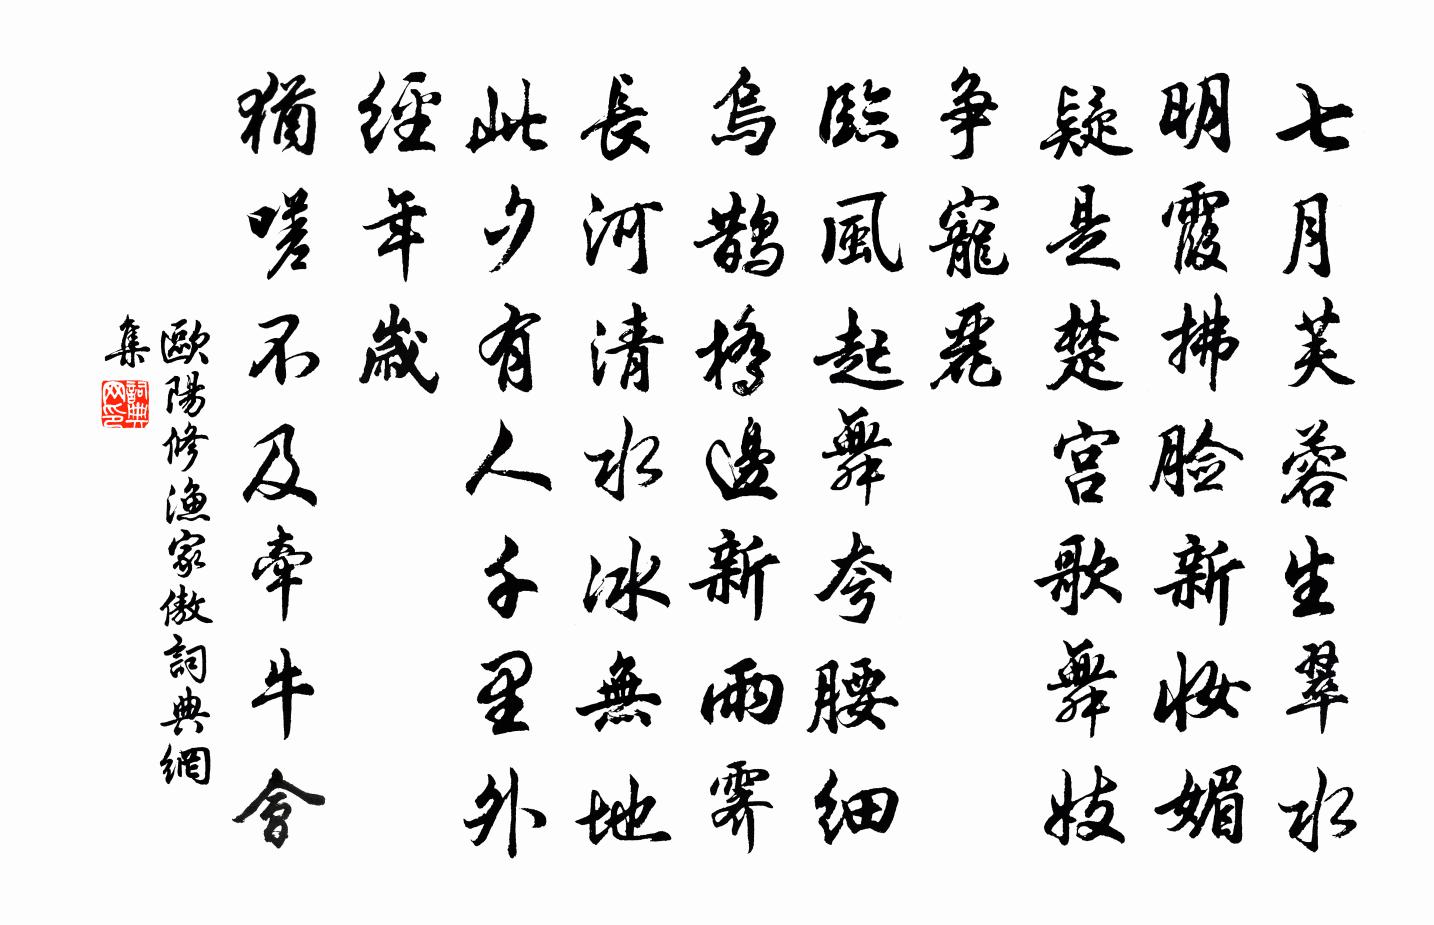 七月芙蓉生翠水
明霞拂脸新妆媚
疑是楚宫歌舞妓
争寵麗
臨風起舞夸腰細
烏鹊橋邊新雨霽
長河清水冰無地
此夕有人千里外
經年歲
猶嗟不及牽牛會
歐陽修漁家傲詞典網
集
詞典网印